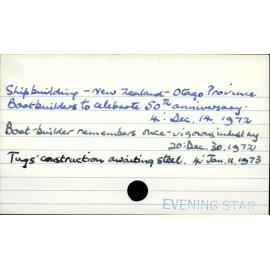 Shipbuilding - New Zealand - Otago Province
Boatbuilders to celebrate 50th anniversary.
4: Dec. 14. 1972
Boat-builder remembers once-vigorous industry
20: Dec. 30. 1972
Tugs' construction awaiting steel. 4: Jan. 11. 1973
EVENING STAR